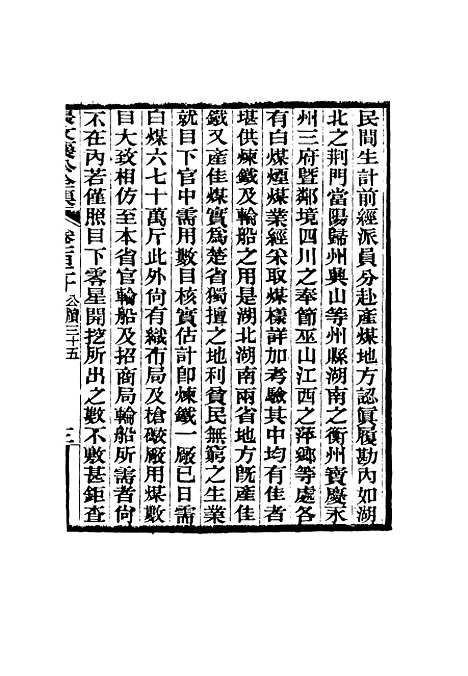 民間生計前經派員分赴產煤地方認眞履勘內如湖
北之荆門當陽歸州興山等州縣湖南之衡州寶慶永
州三府曁鄰境四川之奉節巫山江西之萍鄉等處各
有白煤煙煤業經采取煤樣詳加考驗其中均有佳者
堪供煉鐵及輪船之用是湖北湖南兩省地方旣產佳
鐵又產佳煤實爲楚省獨擅之地利貧民無窮之生業
就目下官中需用數目核實估計卽煉鐵一廠已日需
白煤六七十萬斤此外尙有織布局及槍礮廠用煤數
目大致相仿至本省官輪船及招商局輪船所需者尙
不在內若僅照目下零星開挖所出之數不敷甚鉅查
公牘三十五